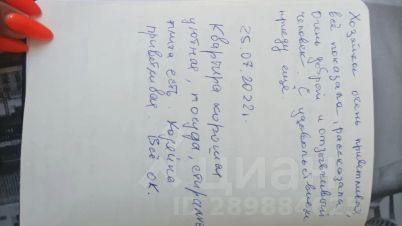 Хозяйка очень приветливая,
всё показала, рассказала.
Очень добрый и отзывчивый
человек. С удовольствием
приеду ещё.
25.07.2022г.
Квартира хорошая
уютная, посуда, стиральн
есть. Хозяйка
приветливая. Всё ок.
циан
ID 28988